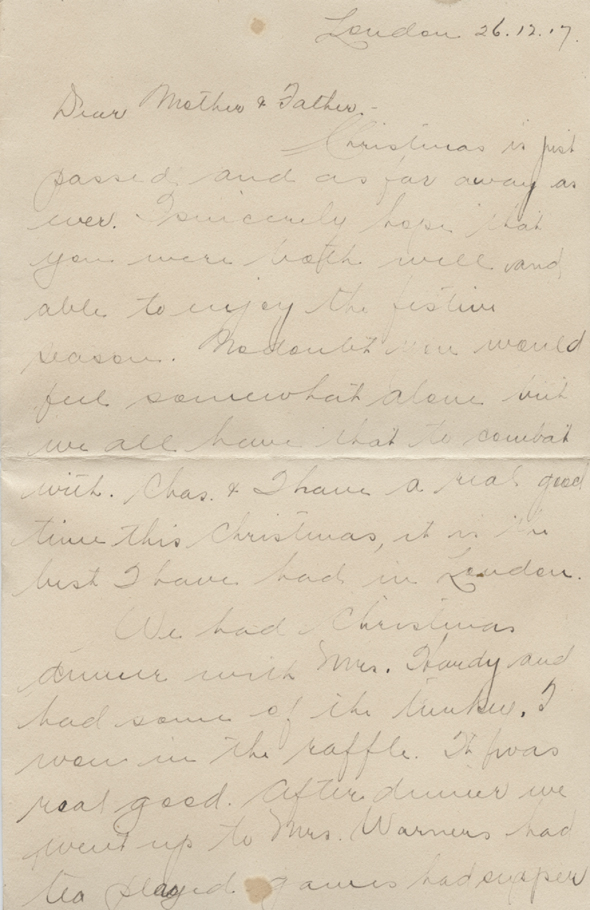 London 26.12.17.
Dear Mother & Father.-
Christmas is just
passed and as far away as
ever. I sincerely hope that
you were both well and
able to enjoy the festive
season. No doubt you would
feel somewhat alone but
we all have that to combat
with. Chas. & I have a real good
time this Christmas, it is the
best I have had in London.
We had Christmas
dinner with Mrs. Hardy and
had some of the turkey. I
won in the raffle. It was
real good. After dinner we
went up to Mrs. Warners had
tea played games had supper